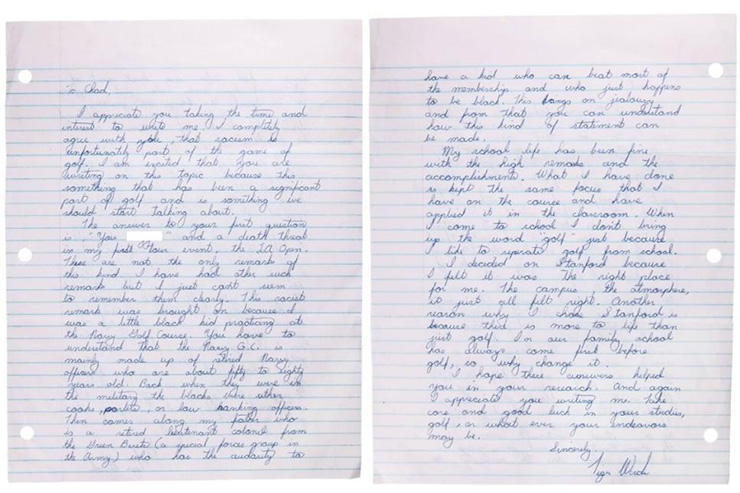 To Chad,
I appreciate you taking the time and
interest to write me. I completely
agree with you, that racism is
unfortunately part of the game of
golf. I am excited that you are
writing on this topic because this
something that has been a significant
part of golf and is something we
should start talking about.
The answer to your first question
is, "You " and a death threat
in my first tour event, the LA Open.
These are not the only remarks of
this kind I have had other such
remark but I just can't seem
to remember them clearly. This racist
remark was brought on because I
was a little black kid practicing at
the Navy Golf Course. You have to
understand that the Navy G.C. is
mainly made up of retired Navy
officers who are about fifty to eighty
years old. Back when they were in
the military the blacks there either
cooks, , or low ranking officers.
Then comes along my father who
is a retired lieutenant colonel from
the Green Berets (a special forces group in
the Army) who has the audacity to
have a kid who can beat most of
the membership and who just happens
to be black. This on jealousy
and from that you can understand
how this kind of statement can
be made.
My school life has been fine
with the high remarks and the
accomplishments. What I have done
is kept the same focus that I
have on the course and have
applied it in the classroom. When
I come to school I don't bring
up the word "golf" just because
I like to separate golf from school.
I decided on Stanford because
I felt it was the right place
for me. The campus, the atmosphere,
it just all felt right. Another
reason why I chose Stanford is
because there is more to life than
just golf. In our family school
has always come first before
golf, so why change it.
I hope these answers helped
you in your research. And again
I appreciate you writing me. Take
care and good luck in your studies,
golf, or what ever your endeavors
may be.
Sincerely,
Tiger Woods